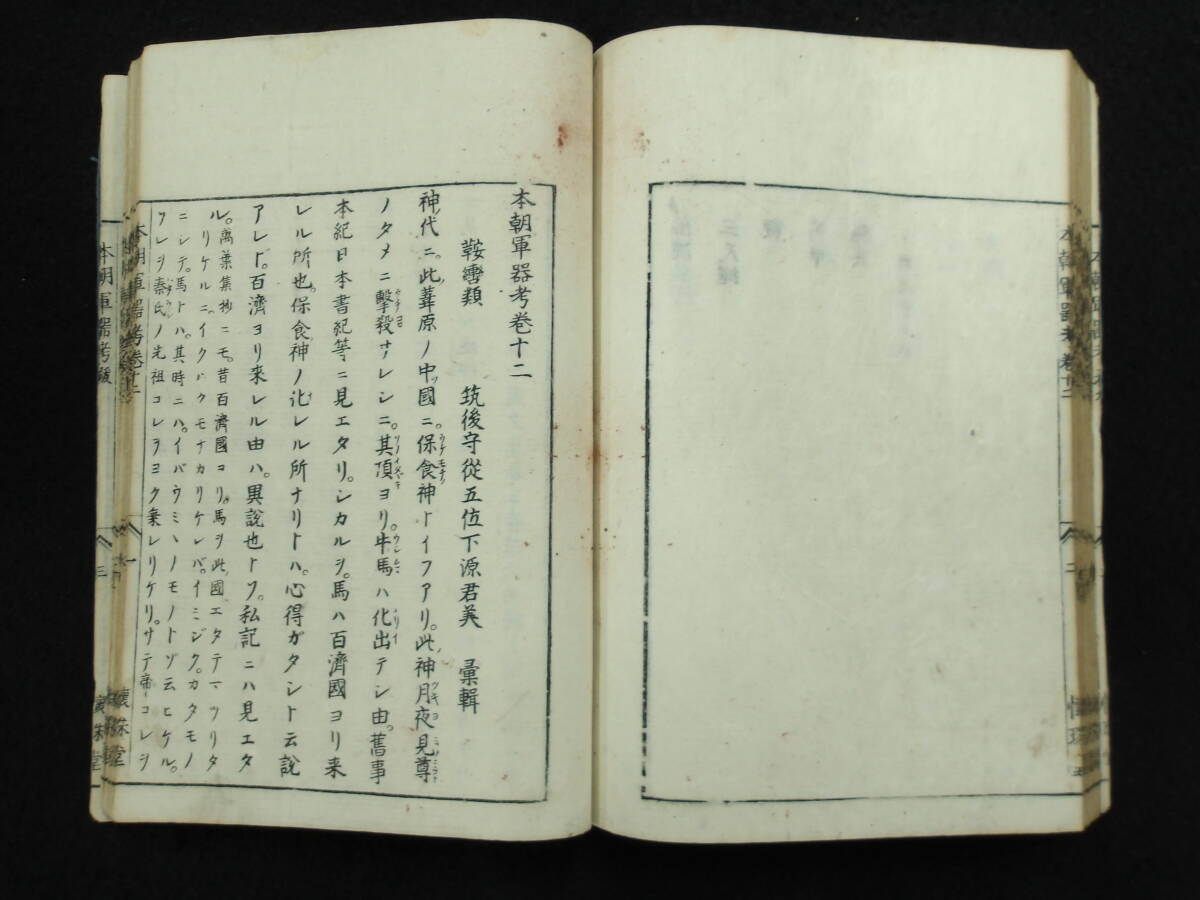 本朝軍器考卷十二
鞍轡類　筑後守從五位下源君美　彙輯
神代ニ。此葦原ノ中國ニ。保食神トイフアリ。此神月夜見尊
ノタメニ擊殺サレシニ。其頂ヨリ。牛馬ハ化出テシ由。舊事
本紀日本書紀等ニ見エタリ。シカルヲ。馬ハ百濟國ヨリ来
レル所也。保食神ノ化レル所ナリトハ。心得ガタシト云説
アレド。百濟ヨリ来レル由ハ。異説也トソ。私記ニハ見エタ
ル。萬葉集抄ニモ。昔百濟國ヨリ。馬ヲ此國エタテマツリタ
リケルニイクバクモナカリケレバ。イミジク。カタモノ
ニシテ。馬トハ。其時ニハ。イバウミヽノモノトゾ云ヒケル。
ワレシ秦氏ノ先祖コレヲヨク乗レリケリ。サテ帝コレヲ
本朝軍器考卷十二
本朝軍器考
三
懷珠堂
本朝軍器考卷十二
二